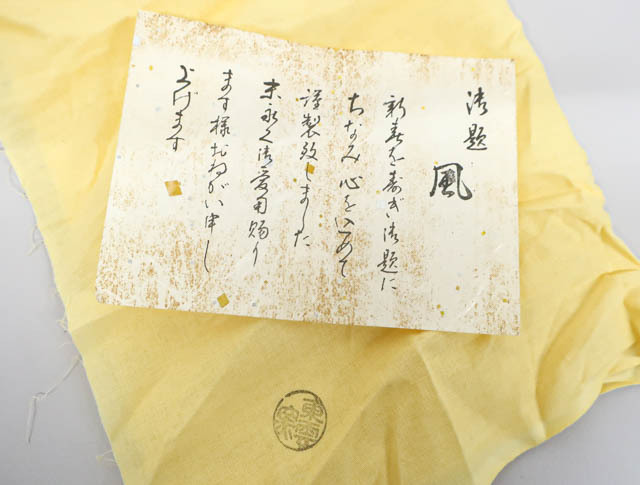 御題
風
新春を寿ぎ御題に
ちなみ心を込めて
謹製致しました
末永く御愛用賜り
ます様おねがい申し
上げます